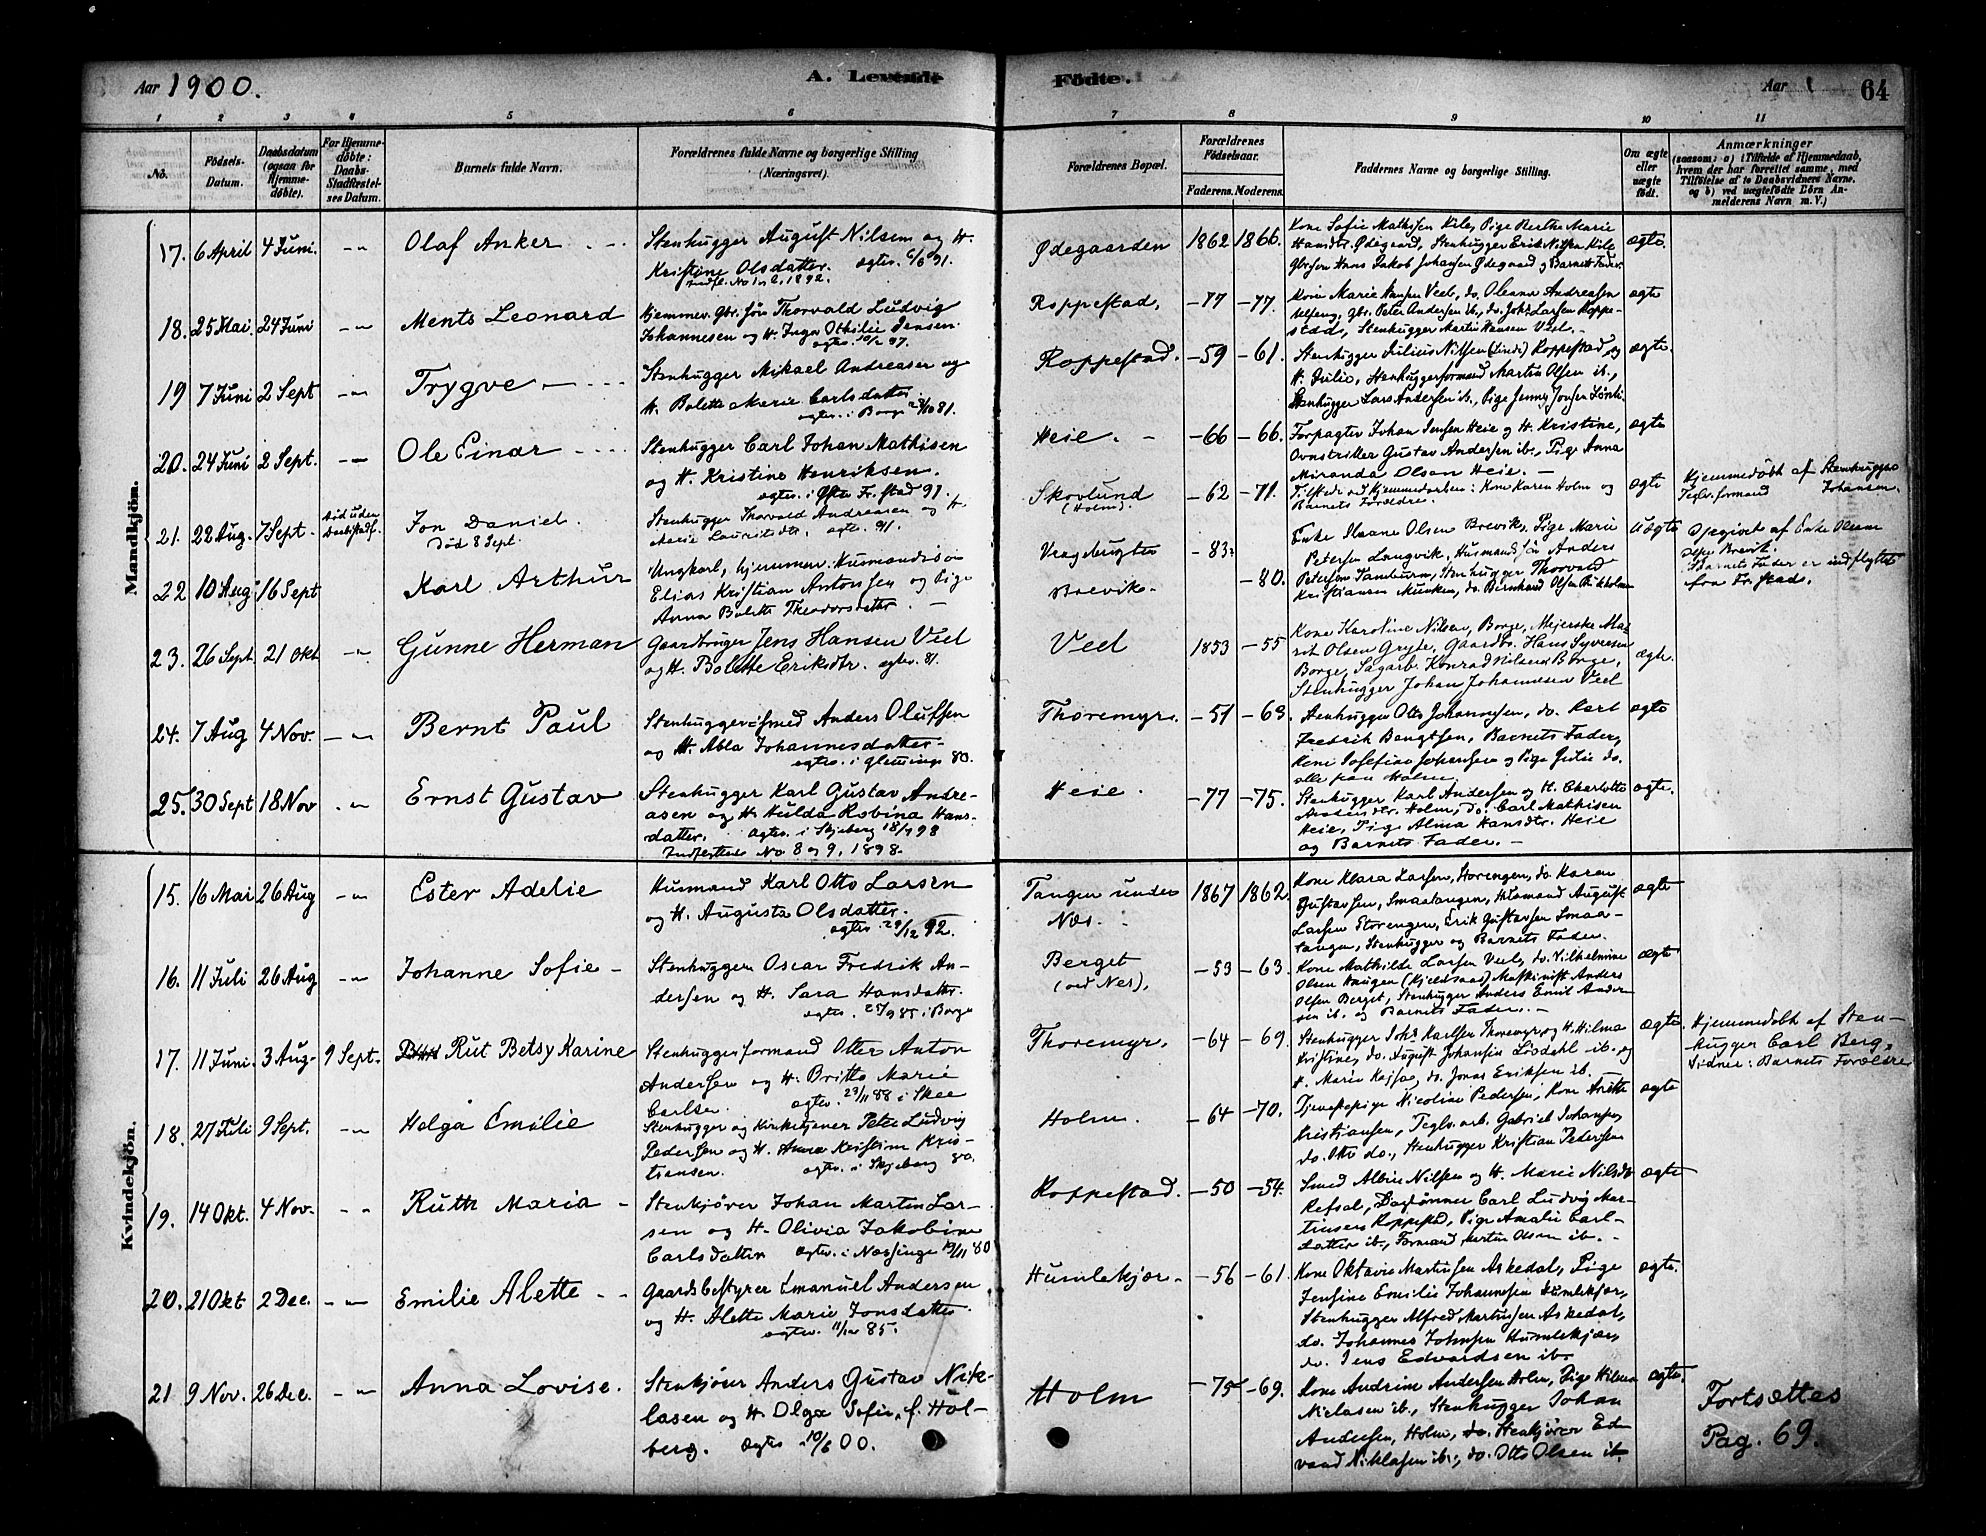 Aar 1900.
A. Levende
Födte.
Aar
64
1 2 3 4 5 6 7 8 9 10 11
No.
Födsels-Datum.
Daabsdatum (ogsaa for Hjemme-döbte).
For Hjemme-döbte: Daabs-Stadfæstel-ses Datum.
Barnets fulde Navn.
Forældrenes fulde Navne og borgerlige Stilling (Næringsvei).
Forældrenes Bopæl.
Forældrenes Födselsaar.
Faderens. Moderens.
Faddernes Navne og borgerlige Stilling.
Om ægte eller uægte födt.
Anmærkninger
(saasom: a) i Tilfælde af Hjemmedaab, hvem der har forrettet samme, med Tilföielse af to Daabsvidners Navne, og b) ved uægtefödte Börn An-melderens Navn m. V.)
Mandkjön.
17. 6 April 4 Juni. -"- Olaf Anker
Stenhugger August Nilsen og H.
Kristine Olsdatter. ægtev. 6/6 91.
Indfl. No 1 og 2, 1892.
Ødegaarden 1862 1866.
Kone Sofie Mathisen Kile, Pige Berthe Marie
Hansdtr. Ødegaard, Stenhugger Erik Nilsen Kile
Gbrsøn Hans Jakob Johansen Ødegaard og Barnets Fader.
ægte.
18. 25 Mai 24 Juni -"- Ments Leonard
Hjemmev. Gbr. søn Thorvald Ludvig
Johannesen og H. Inga Othilie Jensen.
ægtev. 10/2 97.
Roppestad, -77 -77.
Kone Marie Hansen Veel, do. Oleana Andreasen
Gbr. Peter Andersen ib., do. Johs. Larsen Roppe-
stad, Stenhugger Martin Hansen Veel.
ægte
19 7 Juni 2 Sept -"- Trygve
Stenhugger Mikael Andreasen og
H. Bolette Marie Carlsdatter.
ægtev. i Borge 81.
Roppestad. -59 -61.
Stenhugger Julius Nilsen (Lindi) Roppestad og
H. Julie, Stenhuggerformand Martin Olsen ib.,
Stenhugger Lars Andersen ib., Pige Jenny Jonsen
ægte.
20. 24 Juni 2 Sept. -"- Ole Einar
Stenhugger Carl Johan Mathisen
og H. Kristine Henriksen.
ægtev. i Østre Fr.stad 97.
Heie. -66 -66.
Forpagter Johan Jensen Heie og H. Kristine,
Gustav Andersen ib., Pige Anna
Miranda Olsen Heie.
ægte
21. 22 Aug. 7 Sept. Död uden Daabsstadf.
Jon Daniel.
Död 8 Sept.
Stenhugger Thorvald Andreasen og H.
Marie Lauritsdtr. ægtev. 91.
Skovlund (Holm). -62 -71.
Tilstede ved Hjemmedaaben: Kone Karen Holm og
Barnets Forældre.
ægte
Hjemmedöbt af Stenhugger
Teglv. formand Johansen.
22 10 Aug 16 Sept Karl Arthur
Ungkarl, hjemmev. Husmandssøn
Elias Kristian Antonsen og Pige
Anna Bolette Theodorsdatter.
Vragbugten -83
Brevik. -80.
Enke Olsen Brevik, Pige Marie
Petersen Langvik, Husmandssøn Anders
Petersen Tamburn, Stenhugger Thorvald
Kristiansen Munken, do. Bernhard Olsen
Uægte
Opgivet af Enke Olsen
Brevik.
Barnets Fader er indflyttet
fra Fr.stad.
23. 26 Sept. 21 Okt -"- Gunne Herman
Gaardbruger Jens Hansen Veel
og H. Bolette Eriksdtr. ægtev. 81.
Veel 1853 -55
Kone Karoline Nilsen, Borge, Meierske Ma-
rit Olsen Gryte, Gaardbr. Hans Syversen
Borge, Sagarb. Konrad Nilsen Borge,
Stenhugger Johan Johannesen Veel
ægte.
24. 7 Aug 4 Nov. -"- Bernt Paul
Stenhuggersmed Anders Olufsen
og H. Abla Johannesdatter
ægtev. i Glemminge 80.
Thoremyr. -51 -63.
Stenhugger Otto Johannesen, do. Karl
Fredrik Bengtsen, Barnets Fader,
Kone Josefine Johansen og Pige Julie do.
alle fra Holm.
ægte
25. 30 Sept 18 Nov -"- Ernst Gustav
Stenhugger Karl Gustav Andre-
asen og H. Hulda Robina Hans-
datter. ægtev. i Skjeberg 18/7 98
Indførtes No 8 og 9, 1898.
Heie. -77 -75.
Stenhugger Karl Andersen og H. Charlotte
Holm, do. Carl Mathisen
Heie, Pige Alma Hansdtr. Heie
og Barnets Fader.
ægte.
Kvindekjön.
15. 16 Mai 26 Aug -"- Ester Adelie
Husmand Karl Otto Larsen
og H. Augusta Olsdatter.
ægtev. 29/12 92.
Tangen under Næs. 1867 1862.
Kone Klara Larsen, Storengen, do. Karen
Gustavsen, Smaatangen, Husmand August
Larsen Storengen, Erik Gustavsen Smaa-
tangen, Stenhugger og Barnets Fader.
ægte
16. 11 Juli 26 Aug -"- Johanne Sofie
Stenhugger Oscar Fredrik An-
dersen og H. Sara Hansdatter.
ægtev. 27/9 85 i Borge
Berget (ved Nes). -53 -63.
Kone Mathilde Larsen Veel, do. Vilhelmine
Olsen Haugen (Kjeldsaas) Maskinist Anders
Olsen Berget, Stenhugger Anders Emil Ander-
sen ib. og Barnets Fader.
ægte
17. 11 Juni. 3 Aug. 9 Sept. Rut Betsy Karine
Stenhuggerformand Otter Anton
Andersen og H. Britta Marie
Carlsen. ægtev. 23/11 88 i Skee
Thoremyr. -64 -69.
Stenhugger Johs Karlsen Thoremyr og H. Hilma
Kristine, do. August Johansen Lisdahl ib. og
H. Maria Kajsa, do. Jonas Eriksen ib.
ægte
Hjemmedöbt af Sten-
hugger Carl Berg,
Vidner: Barnets Forældre
18. 27 Juli 9 Sept. -"- Helga Emilie
Stenhugger og Kirketjener Peter Ludvig
Pedersen og H. Anna Kristine Kris-
tiansen. ægtev. i Skjeberg 90.
Holm. -64 -70.
Tjenestepige Nicoline Pedersen, Kone Anette
Kristiansen, Teglv.arb. Gabriel Johansen,
do. Otto do., Stenhugger Kristian Pedersen
ægte
19. 14 Okt. 4 Nov. -"- Ruth Maria
Stenkjører Johan Martin Lar-
sen og H. Olivia Jakobine
Carlsdatter ægtev. i Næssinge 19/11 80
Roppestad. -50 -54.
Smed Albin Nilsen og H. Marie Nilsdtr
Refsal, Daglønner Carl Ludvig Mar-
tinsen Roppestad, Pige Amalie Carls-
datter ib., Formand Martin Olsen ib.
ægte
20. 21 Okt 2 Dec. -"- Emilie Alette
Gaardsbestyrer Emanuel Andersen
og H. Alette Marie Jonsdatter
ægtev. 11/12 85.
Humlekjær. -56 -61.
Kone Oktavie Martinsen Askedal, Pige
Jensine Emilie Johannesen Humlekjær,
Stenhugger Alfred Martinsen Askedal,
do. Johannes Johnsen Humlekjær,
do. Jens Edvardsen ib.
ægte.
21 9 Nov. 26 Dec. -"- Anna Lovise.
Stenkjører Anders Gustav Nik-
lasen og H. Olga Sofie, f. Hol-
berg. ægtev. 10/6 00.
Holm -75 -69.
Kone Andrine Andersen Holm, Pige Hilma
Niclasen ib., Stenhugger Johan
Andersen, Holm, do. Stenkjører Ed-
vard Niklasen ib., do. Otto Olsen ib.
ægte.
Fortsættes
Pag. 69.